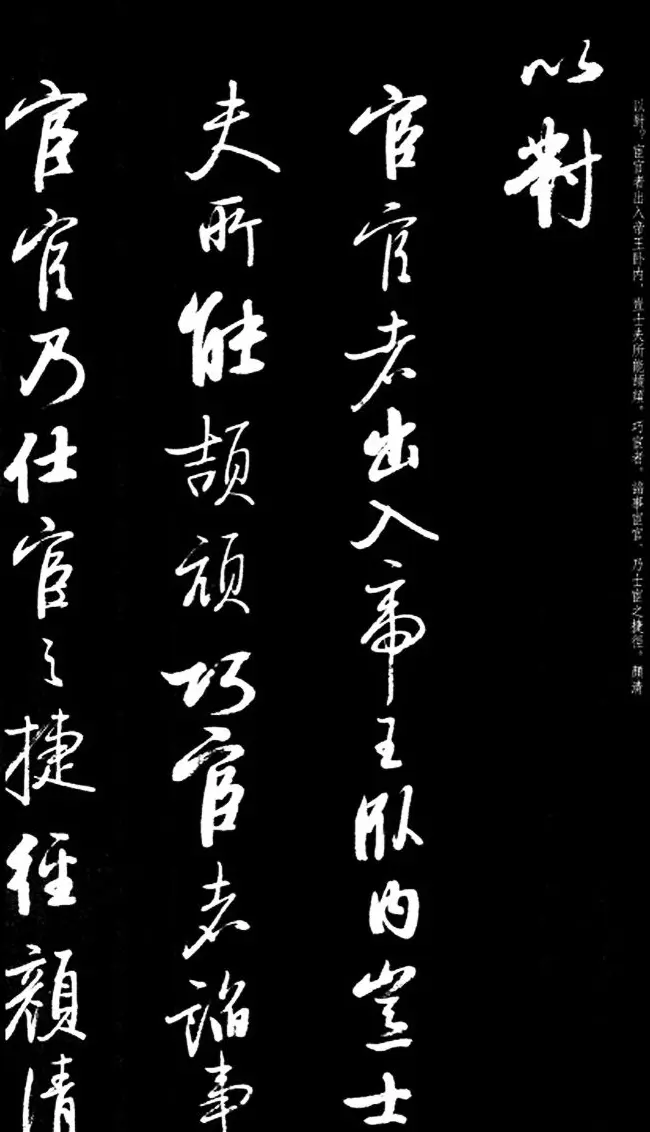 以對。宦官者出入帝王卧内，豈士夫所能頡頏。巧宦者，諂事宦官，乃士宦之捷徑。顏清
以對
宦官者出入帝王卧内豈士
夫所能頡頏巧宦者諂事
宦官乃仕宦之捷徑顏清